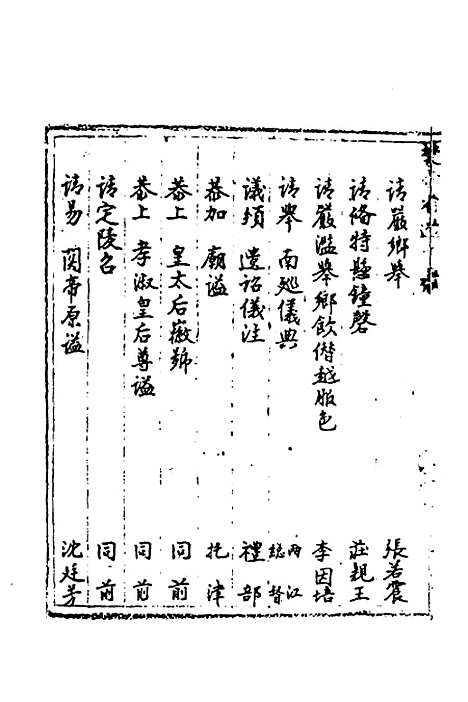 請嚴鄉舉 張若震
請脩特懸鐘磬 莊親王
請嚴濫舉鄉飲僣越服色 李因培
請舉 南廵儀典 兩江總督
議頒 遺詔儀注 禮部
恭加 廟謚 托津
恭上 皇太后徽號 同前
恭上 孝淑皇后尊謚 同前
請定陵名 同前
請易 関帝原謚 沈廷芳